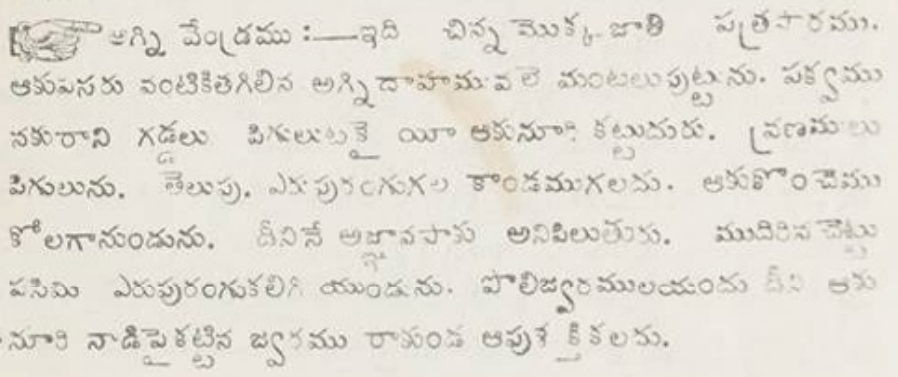 అగ్ని వేంద్రము :—ఇది చిన్న మొక్క జాతి పత్రసారము.
ఆకుపసరు వంటికితగిలిన అగ్నిదాహమువలె మంటలుపుట్టును. పక్వము
నకురాని గడ్డలు పిగులుటకై యీ ఆకునూరి కట్టుదురు. వ్రణములు
పిగులును. తెలుపు, ఎరుపురంగుగల కాండముగలదు. ఆకుకొంచెము
కోలగానుండును. దీనినే అజ్ఞానపాకు అనిపిలుతురు. ముదిరిన చెట్టు
పసిమి ఎరుపురంగుకలిగి యుండును. పొలిజ్వరములయందు దీని ఆకు
నూరి నాడిపైకట్టిన జ్వరము రాకుండ ఆపుశక్తికలదు.